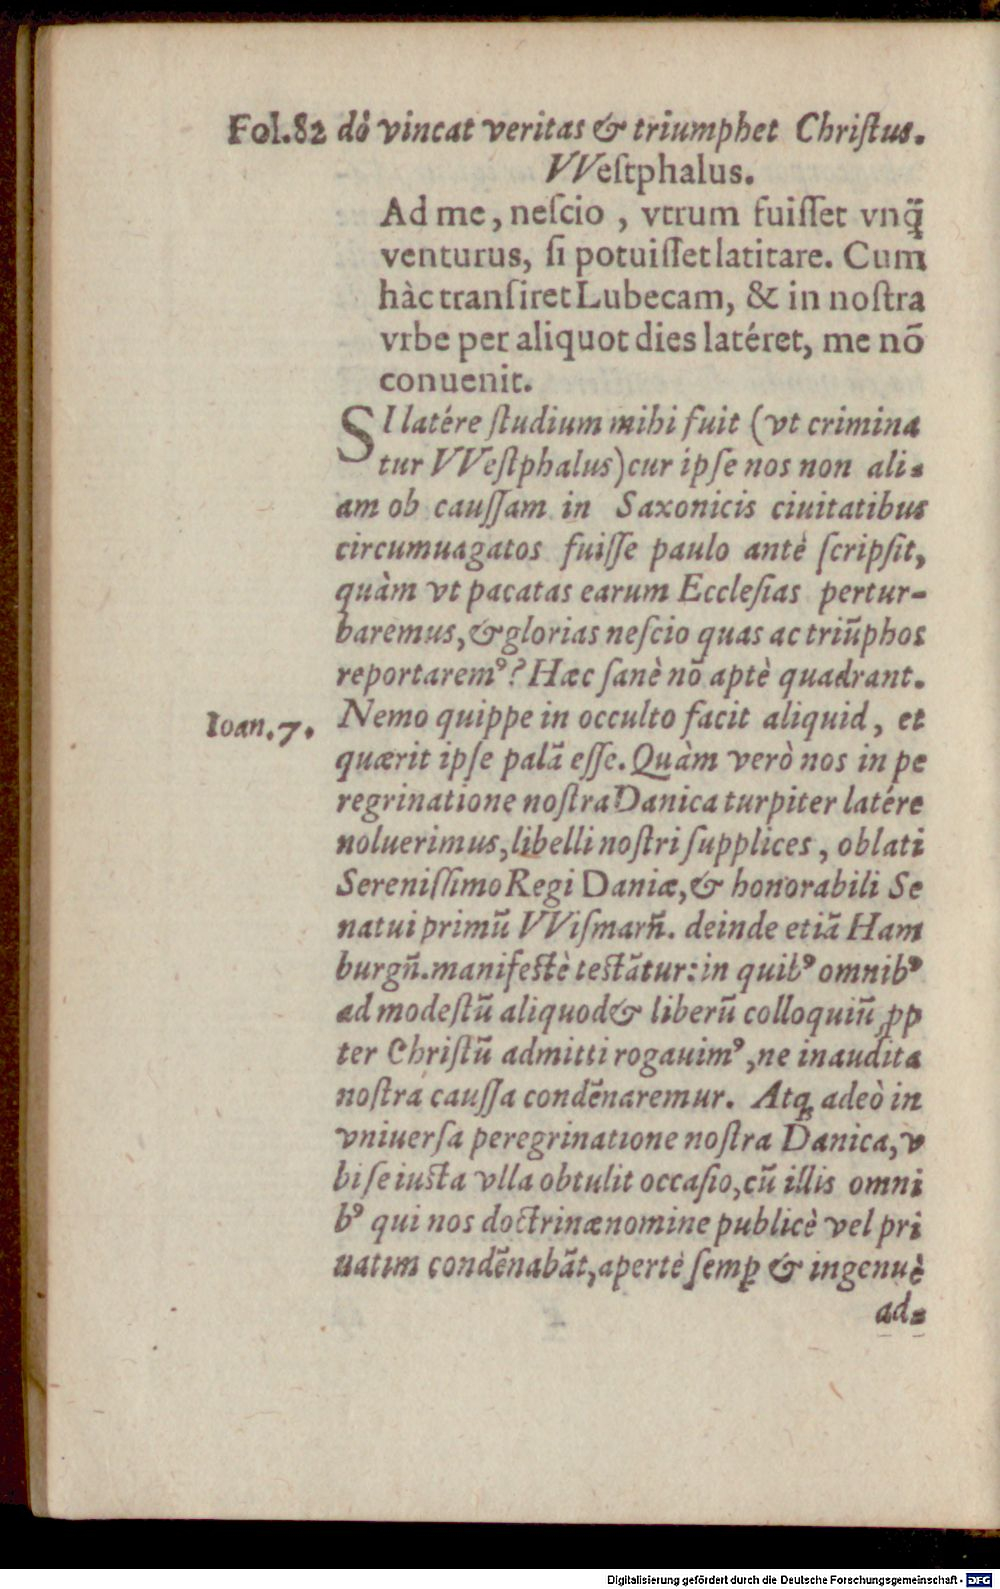 Fol.82 dô vincat veritas & triumphet Chriſtus.
VVeſtphalus.
Ad me, neſcio , vtrum fuiſſet vnq̃
venturus, ſi potuiſſet latitare. Cum
hàc tranſiret Lubecam, & in noſtra
vrbe per aliquot dies latéret, me nõ
conuenit.
SI latére ſtudium mihi fuit (vt crimina
tur VVeſtphalus) cur ipſe nos non ali-
am ob cauſſam in Saxonicis ciuitatibus
circumuagatos fuiſſe paulo antè ſcripſit,
quàm vt pacatas earum Eccleſias pertur-
baremus, & glorias neſcio quas ac triũphos
reportaremꝰ? Hæc ſanè nõ aptè quadrant.
Ioan.7. Nemo quippe in occulto facit aliquid, et
quærit ipſe palã eſſe. Quàm verò nos in pe
regrinatione noſtra Danica turpiter latére
noluerimus, libelli noſtri ſupplices, oblati
Sereniſſimo Regi Daniæ, & honorabili Se
natui primũ VViſmarñ. deinde etiã Ham
burgñ. manifeſtè teſtãtur: in quibꝰ omnibꝰ
ad modeſtũ aliquod & liberũ colloquiũ ꝓp
ter Chriſtũ admitti rogauimꝰ, ne inaudita
noſtra cauſſa condẽnaremur. Atq; adeò in
vniuerſa peregrinatione noſtra Danica, v
bi ſe iuſta vlla obtulit occaſio, cũ illis omni
bꝰ qui nos doctrinæ nomine publicè vel pri
uatim condẽnabãt, apertè ſemꝑ & ingenuè
ad-
Digitalisierung gefördert durch die Deutsche Forschungsgemeinschaft - DFG